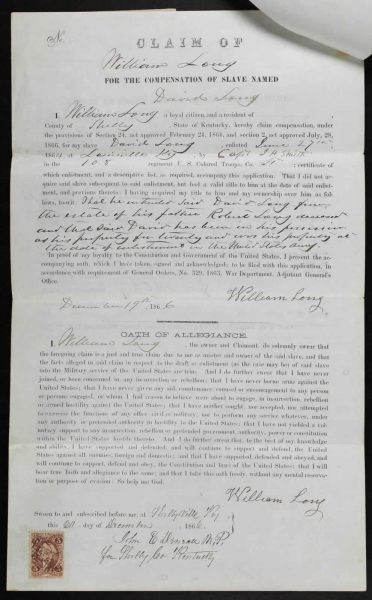 No.
CLAIM OF
William Long
FOR THE COMPENSATION OF SLAVE NAMED
David Long
I, William Long a loyal citizen, and a resident of
County of Shelby State of Kentucky, hereby claim compensation, under
the provisions of Section 24, act approved February 24, 1864, and section 2, act approved July 28,
1866, for my slave David Long, enlisted June 27th
1864 at Louisville Ky, by Capt
in the 108 regiment U. S. Colored Troops, Co. certificate of
which enlistment, and a descriptive list, as required, accompany this application. That I did not ac-
quire said slave subsequent to said enlistment, but had a valid title to him at the date of said enlist-
ment, and previous thereto; I having acquired my title to him and my ownership over him as fol-
lows, to wit: That he inherited said David Long from
the estate of his father Robert Long deceased
and that said David has been in his possession
as his property and was his property at
the date of enlistment in the United States Army.
In proof of my loyalty to the Constitution and Government of the United States, I present the ac-
companying oath, which I have taken, signed and acknowledged; to be filed with this application, in
accordance with requirement of General Orders, No. 329, 1863, War Department, Adjutant General's
Office.
William Long
December 19th 1866
OATH OF ALLEGIANCE.
I, William Long, the owner and Claimant, do solemnly swear that
the foregoing claim is a just and true claim due to me as master and owner of the said slave, and that
the facts alleged in said claim in respect to the draft or enlistment (as the case may be) of said slave
into the Military service of the United States are true. And I do further swear that I have never
joined, or been concerned, in any insurrection or rebellion; that I have never borne arms against the
United States; that I have never given any aid, countenance, counsel or encouragement to any person
or persons engaged, or whom I had reason to believe were about to engage, in insurrection, rebellion
or armed hostility against the United States; that I have neither sought, nor accepted, nor attempted
to exercise the functions of any office civil or military, nor to perform any service whatever, under
any authority or pretended authority in hostility to the United States; that I have not yielded a vol-
untary support to any insurrection, rebellion or pretended government, authority, power or constitution
within the United States hostile thereto. And I do further swear that, to the best of my knowledge
and ability, I have supported and defended, and will continue to support and defend, the United
States against all enemies, foreign and domestic; and that I have supported, defended and obeyed, and
will continue to support, defend and obey, the Constitution and laws of the United States; that I will
bear true faith and allegiance to the same; and that I take this oath freely, without any mental reser-
vation or purpose of evasion: So help me God.
William Long
Sworn to and subscribed before me, at Shelbyville, Ky
this day of December, 1866.
John
for Shelby Co Kentucky